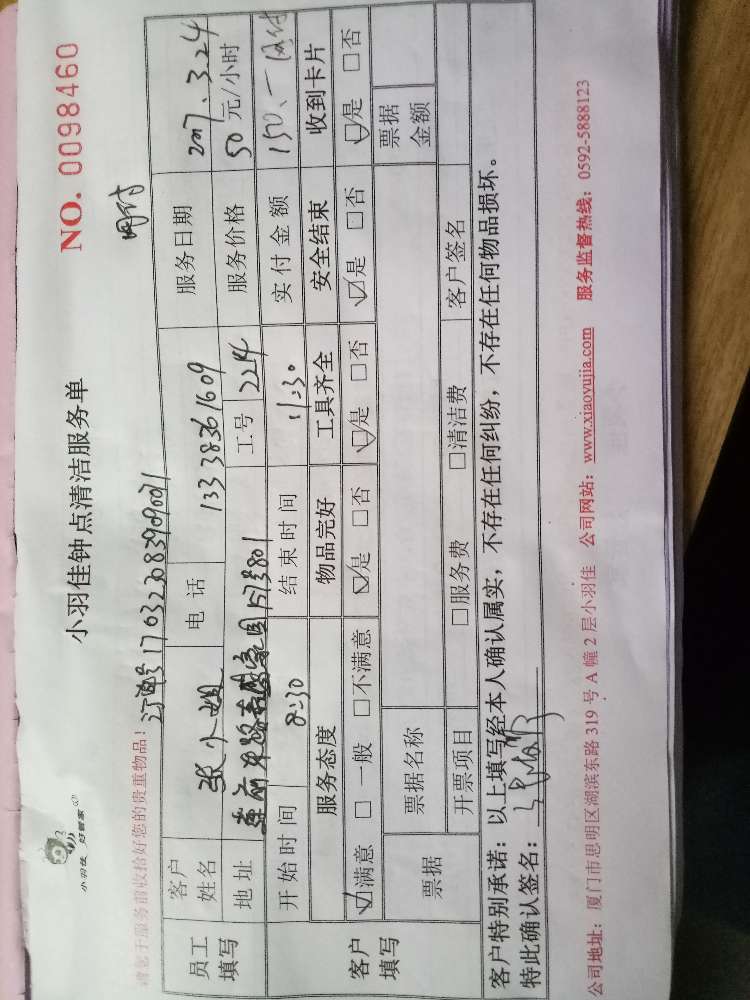 小羽佳 好管家
小羽佳钟点清洁服务单
NO. 0098460
请您于服务前收拾好您的贵重物品！
订单号1703220839090071
网付
员工填写
客户姓名 张小姐 电话 13338361609 服务日期 2017.3.24
地址 801 工号 2214 服务价格 50元/小时
开始时间 8:30 结束时间 11:30 实付金额 150.一网付
客户填写
服务态度 物品完好 工具齐全 安全结束 收到卡片
☑满意 □一般 □不满意 ☑是 □否 ☑是 □否 ☑是 □否 ☑是 □否
票据 票据名称 票据金额
开票项目 □服务费 □清洁费 客户签名
客户特别承诺：以上填写经本人确认属实，不存在任何纠纷，不存在任何物品损坏。
特此确认签名：
公司地址：厦门市思明区湖滨东路 319 号 A 幢 2 层小羽佳 公司网站：www.xiaoyujia.com 服务监督热线：0592-5888123